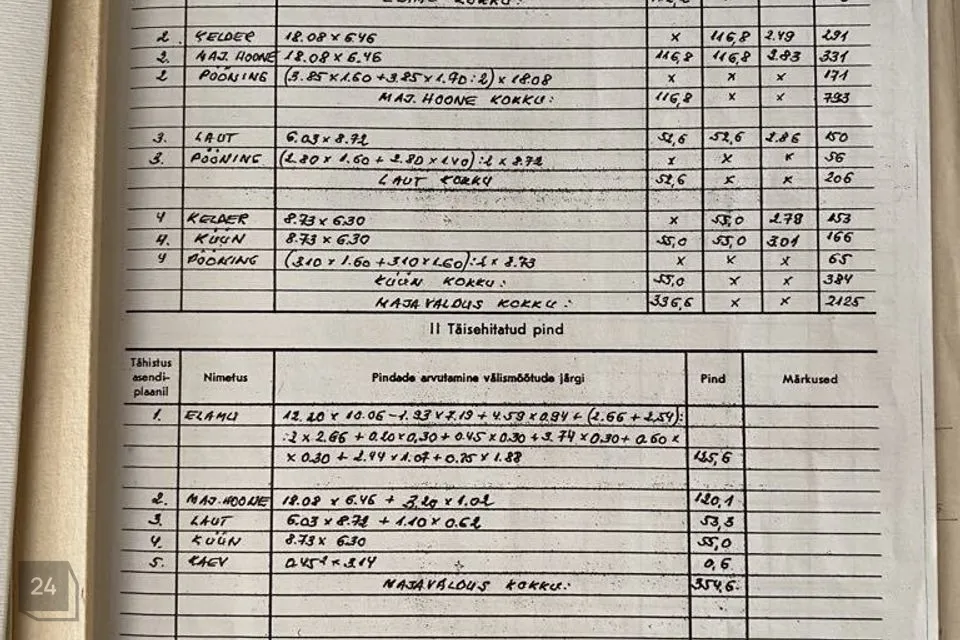 2. KELDER 18.08 × 6.46 × 116,8 2.49 291
2. MAJ. HOONE 18.08 × 6.46 116,8 116,8 2.83 331
2 PÖÖNING (3.85×1.60 + 3.85×1.90:2) × 18.08 × × × 171
MAJ. HOONE KOKKU: 116,8 × × 793
3. LAUT 6.03 × 8.72 52,6 52,6 2.86 150
3. PÖÖNING (2.80 × 1.60 + 2.80 × 1.40):2 × 8.72 × × × 56
LAUT KOKKU 52,6 × × 206
4 KELDER 8.73 × 6.30 × 55,0 2.78 153
4. KÜÜN 8.73 × 6.30 55,0 55,0 3.01 166
4 PÖÖNING (3.10 × 1.60 + 3.10 × 1.60):2 × 8.73 × × × 65
KÜÜN KOKKU: 55,0 × × 384
MAJAVALDUS KOKKU: 336,6 × × 2125
II Täisehitatud pind
Tähistus asendi-plaanil Nimetus Pindade arvutamine välismõõtude järgi Pind Märkused
1. ELAMU 12.20 × 10.06 - 1.93 × 7.19 + 4.59 × 0.94 + (2.66 + 2.54):
:2 × 2.66 + 0.20 × 0.30 + 0.45 × 0.30 + 3.74 × 0.30 + 0.60 ×
× 0.30 + 2.44 × 1.07 + 0.75 × 1.88 125,6
2. MAJ. HOONE 18.08 × 6.46 + 3.20 × 1.02 120,1
3. LAUT 6.03 × 8.72 + 1.10 × 0.62 53,3
4. KÜÜN 8.73 × 6.30 55,0
5. KAEV 0.45² × 3.14 0,6
MAJAVALDUS KOKKU: 354,6
24